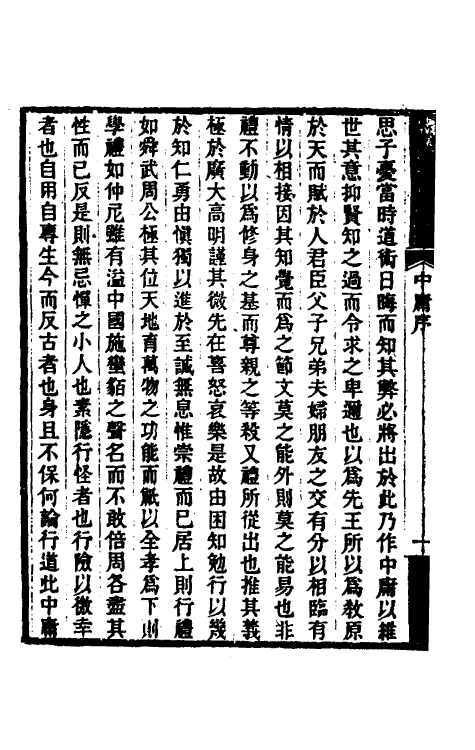 中庸序
一
思子憂當時道術日晦而知其弊必將出於此乃作中庸以維
世其意抑賢知之過而令求之卑邇也以爲先王所以爲教原
於天而賦於人君臣父子兄弟夫婦朋友之交有分以相臨有
情以相接因其知覺而爲之節文莫之能外則莫之能易也非
禮不動以爲修身之基而尊親之等殺又禮所從出也推其義
極於廣大高明謹其微先在喜怒哀樂是故由困知勉行以幾
於知仁勇由愼獨以進於至誠無息惟崇禮而已居上則行禮
如舜武周公極其位天地育萬物之功能而觗以全孝爲下則
學禮如仲尼雖有溢中國施蠻貊之聲名而不敢倍周各盡其
性而已反是則無忌憚之小人也素隱行怪者也行險以徼幸
者也自用自專生今而反古者也身且不保何論行道此中庸